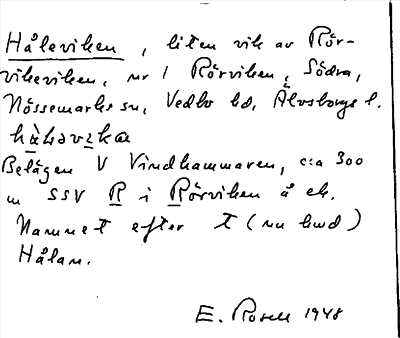 Håleviken, liten vik av Rör-
viksviken, nr 1 Rörviken, Södra,
Nössemarks sn, Vedbo hd, Älvsborgs l.
hàləvɪka
Belägen V Vindhammaren, c:a 300
m SSV R i Rörviken å ek.
Namnet efter t (nu bwd)
Hålan.
E. Rosell 1948